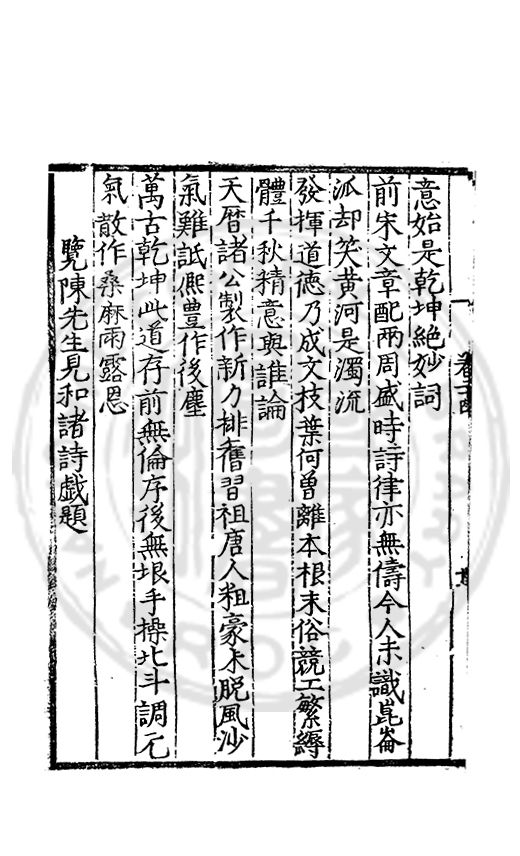 卷十四
意始是乾坤絕妙詞
前宋文章配兩周盛時詩律亦無儔今人未識崑崙
派却笑黃河是濁流
發揮道德乃成文技葉何曽離本根末俗競工繁縟
體千秋精意與誰論
天暦諸公製作新力排舊習祖唐人粗豪未脫風沙
氣難詆熈豐作後塵
萬古乾坤此道存前無倫序後無垠手操北斗調元
氣散作桑麻雨露恩
覽陳先生見和諸詩戯題